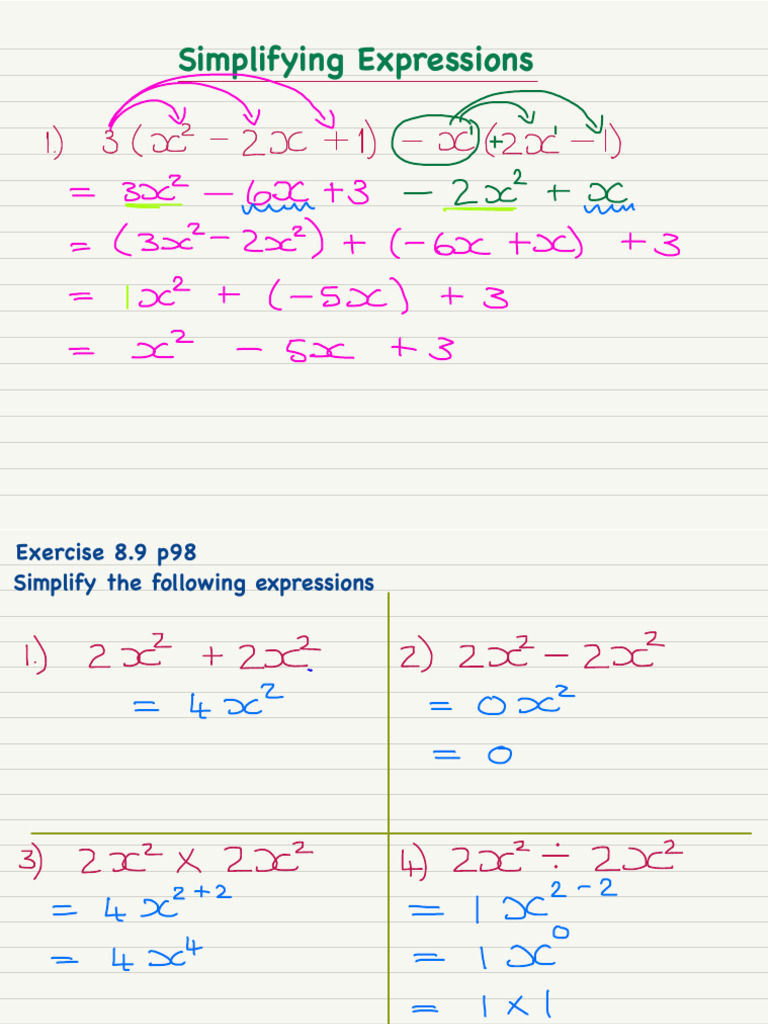 Simplifying Expressions
1.) 3(x² - 2x + 1) - x¹(+2x¹ - 1)
= 3x² - 6x + 3 - 2x² + x
= (3x² - 2x²) + (-6x + x) + 3
= 1x² + (-5x) + 3
= x² - 5x + 3
Exercise 8.9 p98
Simplify the following expressions
1.) 2x² + 2x²
= 4x²
2) 2x² - 2x²
= 0x²
= 0
3) 2x² × 2x²
= 4x²⁺²
= 4x⁴
4.) 2x² ÷ 2x²
= 1x²⁻²
= 1x⁰
= 1 × 1